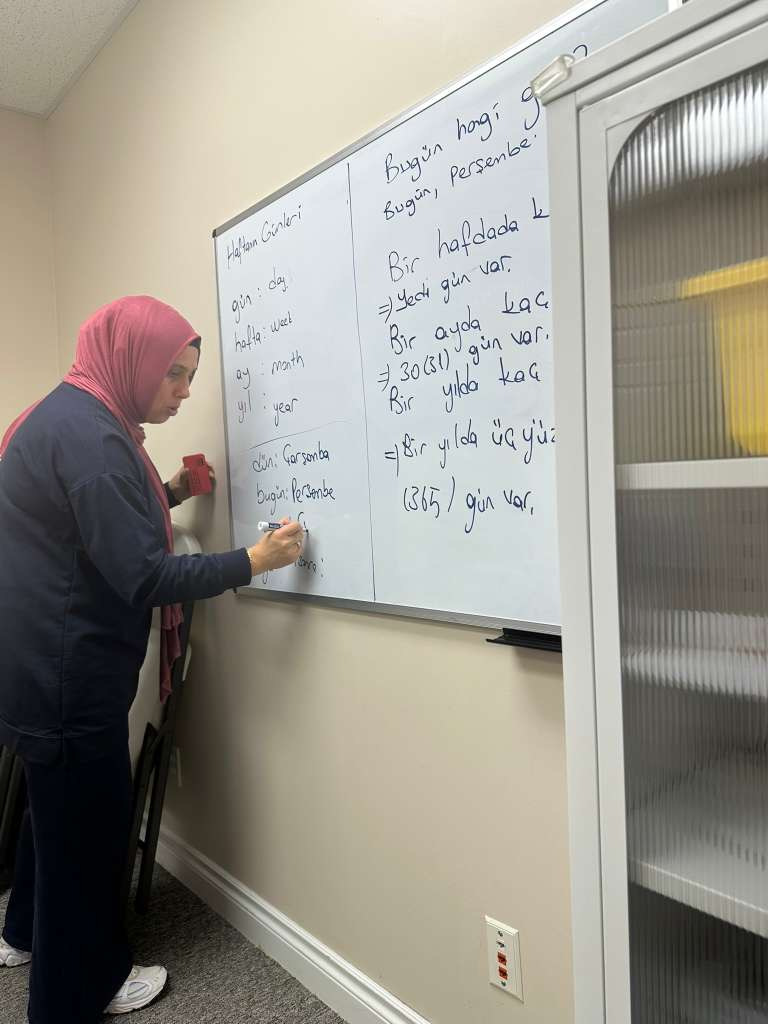 Haftanın Günleri
gün : day
hafta : week
ay : month
yıl : year
dün : Çarşamba
bugün : Perşembe
Bugün hangi g
Bugün, Perşenbe.
Bir hafdada k
=) yedi gün var.
Bir ayda kaç
=) 30 (31) gün var.
Bir yılda kaç
=) Bir yılda üç yüz
(365) gün var.